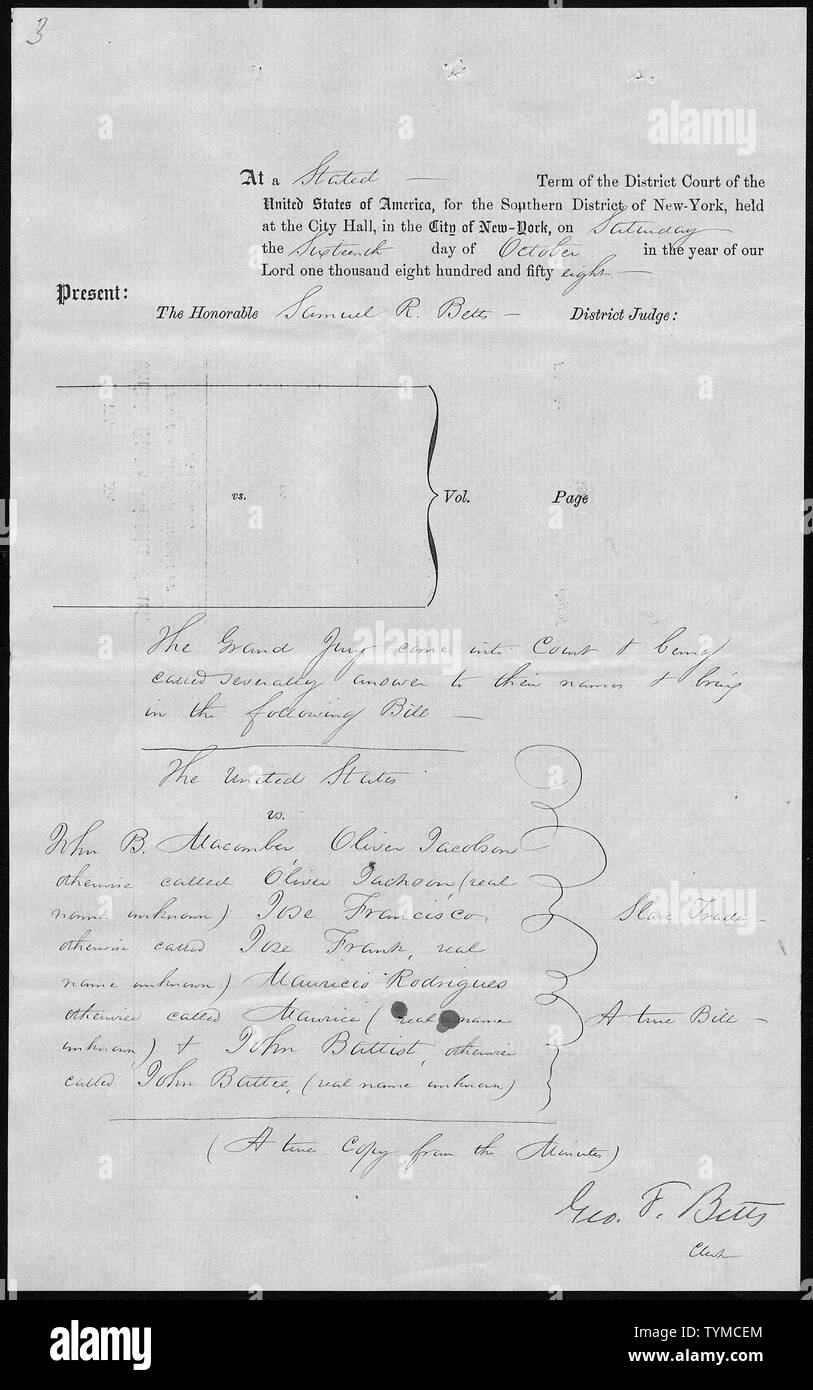 3
At a Stated — Term of the District Court of the
United States of America, for the Southern District of New-York, held
at the City Hall, in the City of New-York, on Saturday
the Sixteenth day of October in the year of our
Lord one thousand eight hundred and fifty eight —
Present:
The Honorable Samuel R. Betts — District Judge:
vs. Vol. Page
The Grand Jury came into Court & being
called severally answer to their names & bring
in the following Bill —
The United States
vs.
John B. Macomber Oliver Jacobson
otherwise called Oliver Jackson (real
name unknown) Jose Francisco, Slave Trade —
otherwise called Jose Frank, real
name unknown) Mauricio Rodrigues
otherwise called Maurice (real name A true Bill —
unknown) & John Battist, otherwise
called John Battee, (real name unknown)
(A true Copy from the Minutes)
Geo. F. Betts
Clerk
alamy
alamy
alamy
alamy
alamy
Image ID: TYMCEM
www.alamy.com